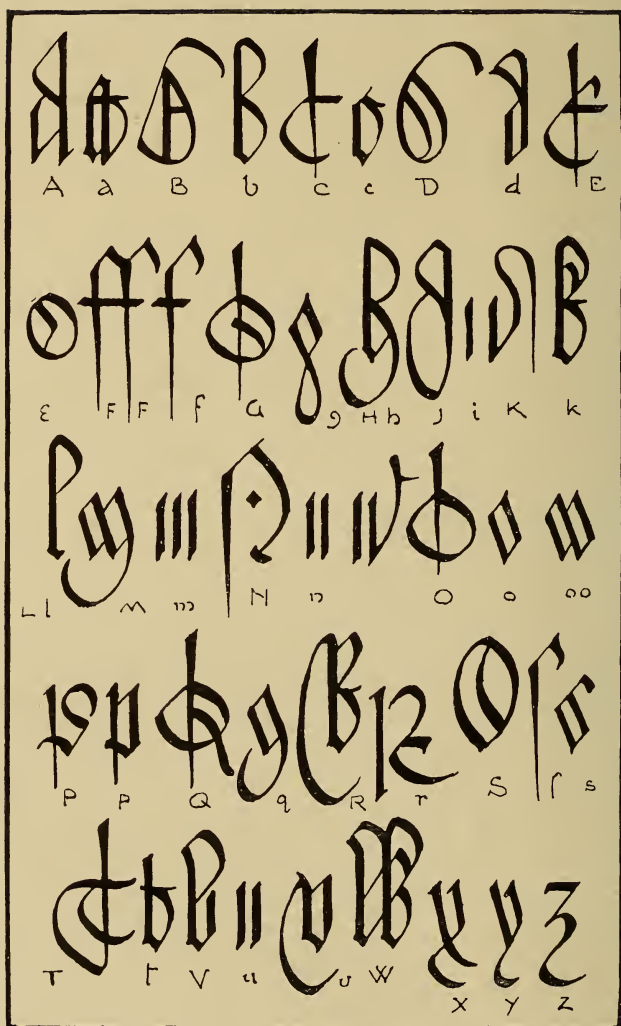 A a B b C c D d E
ε F F f G g H h J i K k
L l M m N n O o oo
P p Q q R r S ſ s
T t V u v W X y z